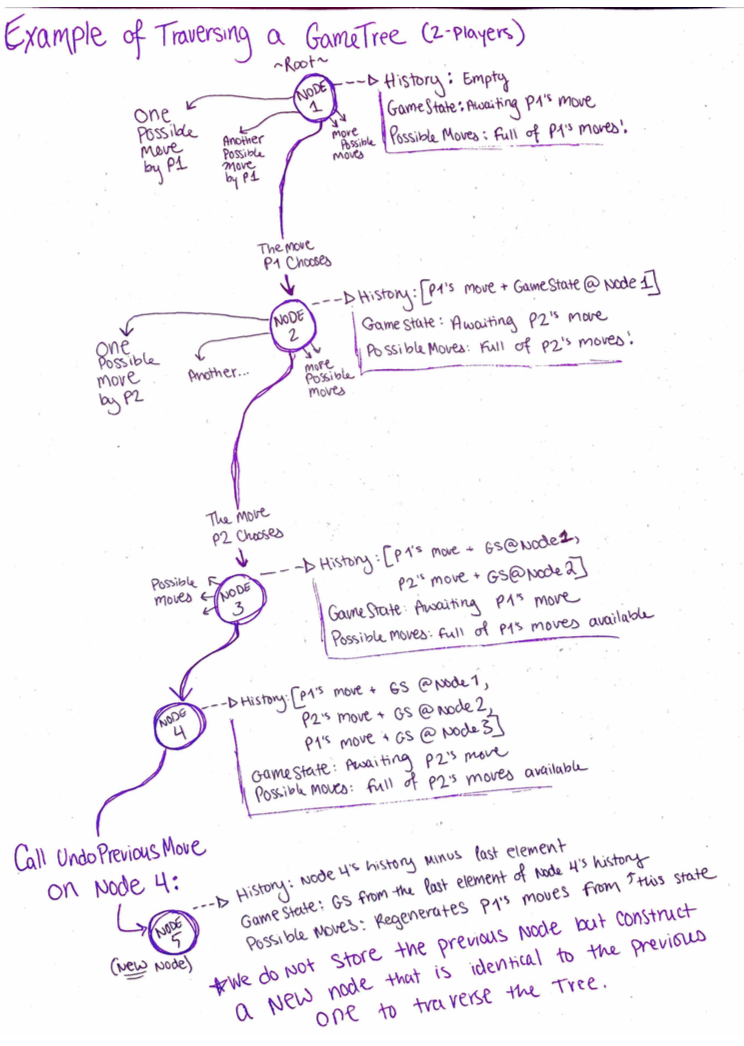 Example of Traversing a GameTree (2-players)
~Root~
NODE
1
---▷ History: Empty
GameState: Awaiting P1's move
Possible Moves: Full of P1's moves!
One
Possible
Move
by P1
Another
Possible
Move
by P1
more
Possible
moves
The move
P1 Chooses
NODE
2
---▷ History: [P1's move + GameState @ Node 1]
GameState: Awaiting P2's move
Possible Moves: Full of P2's moves!
One
Possible
move
by P2
Another...
more
Possible
moves
The move
P2 Chooses
Possible
moves
NODE
3
---▷ History: [P1's move + GS@Node1,
P2's move + GS@Node2]
GameState: Awaiting P1's move
Possible Moves: Full of P1's moves available
NODE
4
---▷ History: [P1's move + GS @Node1,
P2's move + GS @Node2,
P1's move + GS @ Node3]
GameState: Awaiting P2's move
Possible Moves: full of P2's moves available
Call UndoPreviousMove
on Node 4:
NODE
5
(New Node)
---▷ History: Node 4's history minus last element
GameState: GS from the last element of Node 4's history
Possible Moves: Regenerates P1's moves from ↑this state
★We do not store the previous Node but construct
a New node that is identical to the previous
one to traverse the Tree.